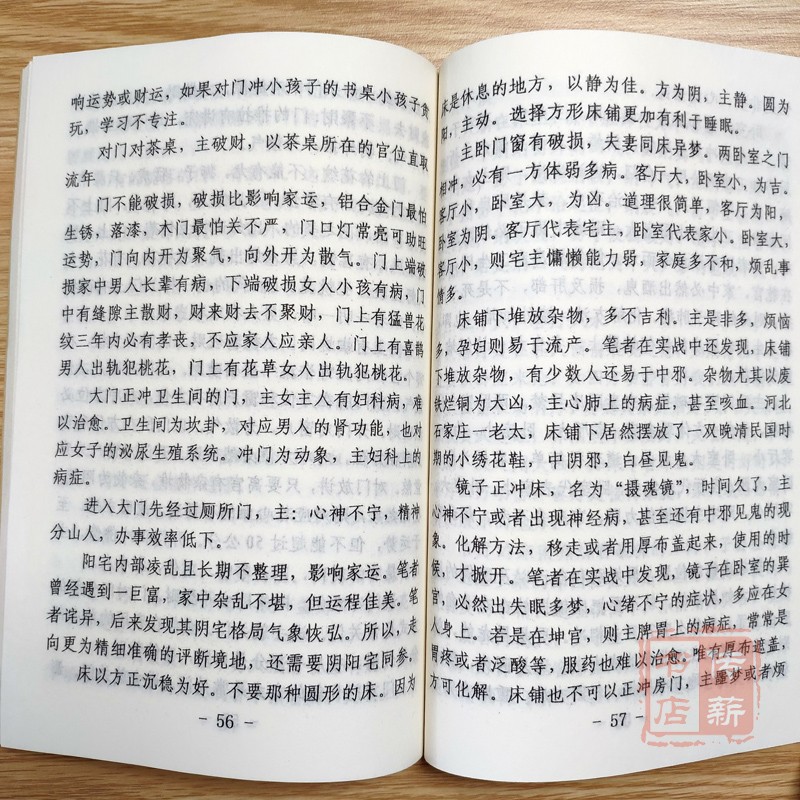 响运势或财运，如果对门冲小孩子的书桌小孩子贪
玩，学习不专注。
对门对茶桌，主破财，以茶桌所在的宫位直取
流年
门不能破损，破损比影响家运，铝合金门最怕
生锈，落漆，木门最怕关不严，门口灯常亮可助旺
运势，门向内开为聚气，向外开为散气。门上端破
损家中男人长辈有病，下端破损女人小孩有病，门
中有缝隙主散财，财来财去不聚财，门上有猛兽花
纹三年内必有孝丧，不应家人应亲人。门上有喜鹊
男人出轨犯桃花，门上有花草女人出轨犯桃花。
大门正冲卫生间的门，主女主人有妇科病，难
以治愈。卫生间为坎卦，对应男人的肾功能，也对
应女子的泌尿生殖系统。冲门为动象，主妇科上的
病症。
进入大门先经过厕所门，主：心神不宁，精神
分山人，办事效率低下。
阳宅内部凌乱且长期不整理，影响家运。笔者
曾经遇到一巨富，家中杂乱不堪，但运程佳美。笔
者诧异，后来发现其阴宅格局气象恢弘。所以，走
向更为精细准确的评断境地，还需要阴阳宅同参。
床以方正沉稳为好。不要那种圆形的床。因为
- 56 -
床是休息的地方，以静为佳。方为阴，主静。圆为
阳，主动。选择方形床铺更加有利于睡眠。
主卧门窗有破损，夫妻同床异梦。两卧室之门
相冲，必有一方体弱多病。客厅大，卧室小，为吉。
客厅小，卧室大，为凶。道理很简单，客厅为阳，
卧室为阴。客厅代表宅主，卧室代表家小。卧室大，
客厅小，则宅主慵懒能力弱，家庭多不和，烦乱事
情多。
床铺下堆放杂物，多不吉利。主是非多，烦恼
多，孕妇则易于流产。笔者在实战中还发现，床铺
下堆放杂物，有少数人还易于中邪。杂物尤其以废
铁烂铜为大凶，主心肺上的病症，甚至咳血。河北
石家庄一老太，床铺下居然摆放了一双晚清民国时
期的小绣花鞋，中阴邪，白昼见鬼。
镜子正冲床，名为“摄魂镜”，时间久了，主
心神不宁或者出现神经病，甚至还有中邪见鬼的现
象。化解方法，移走或者用厚布盖起来，使用的时
候，才掀开。笔者在实战中发现，镜子在卧室的巽
宫，必然出失眠多梦，心绪不宁的症状，多应在女
人身上。若是在坤宫，则主脾胃上的病症，常常是
胃疼或者泛酸等，服药也难以治愈，唯有厚布遮盖，
方可化解。床铺也不可以正冲房门，主噩梦或者烦
- 57 -